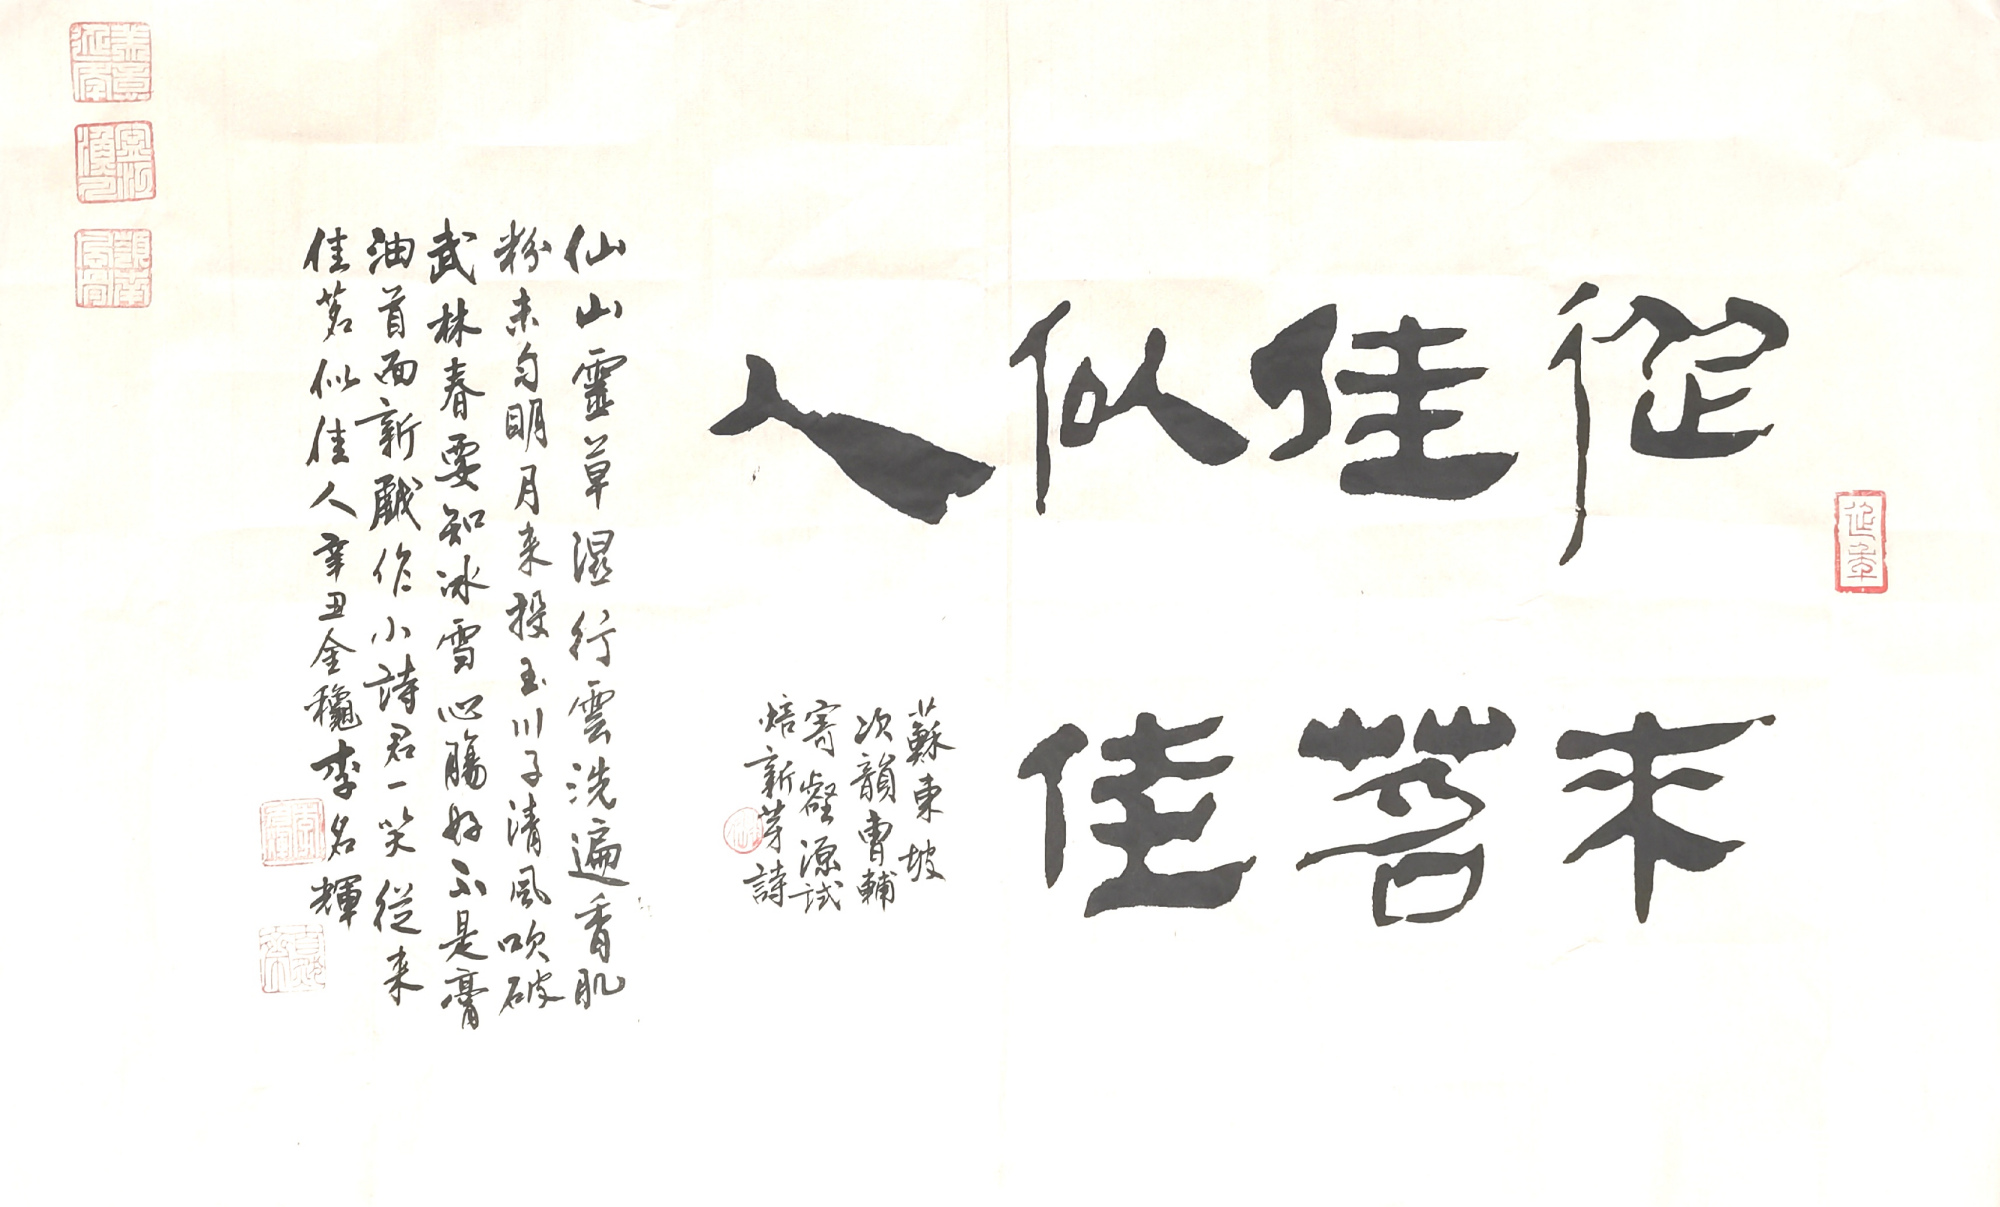 延年
從来
佳茗
似佳
人
蘇東坡
次韻曹輔
寄壑源試
焙新芽詩
仙山靈草濕行雲洗遍香肌
粉未匀明月来投玉川子清風吹破
武林春要知冰雪心腸好不是膏
油首面新戲作小詩君一笑從来
佳茗似佳人辛丑金穐李名輝
美意延年